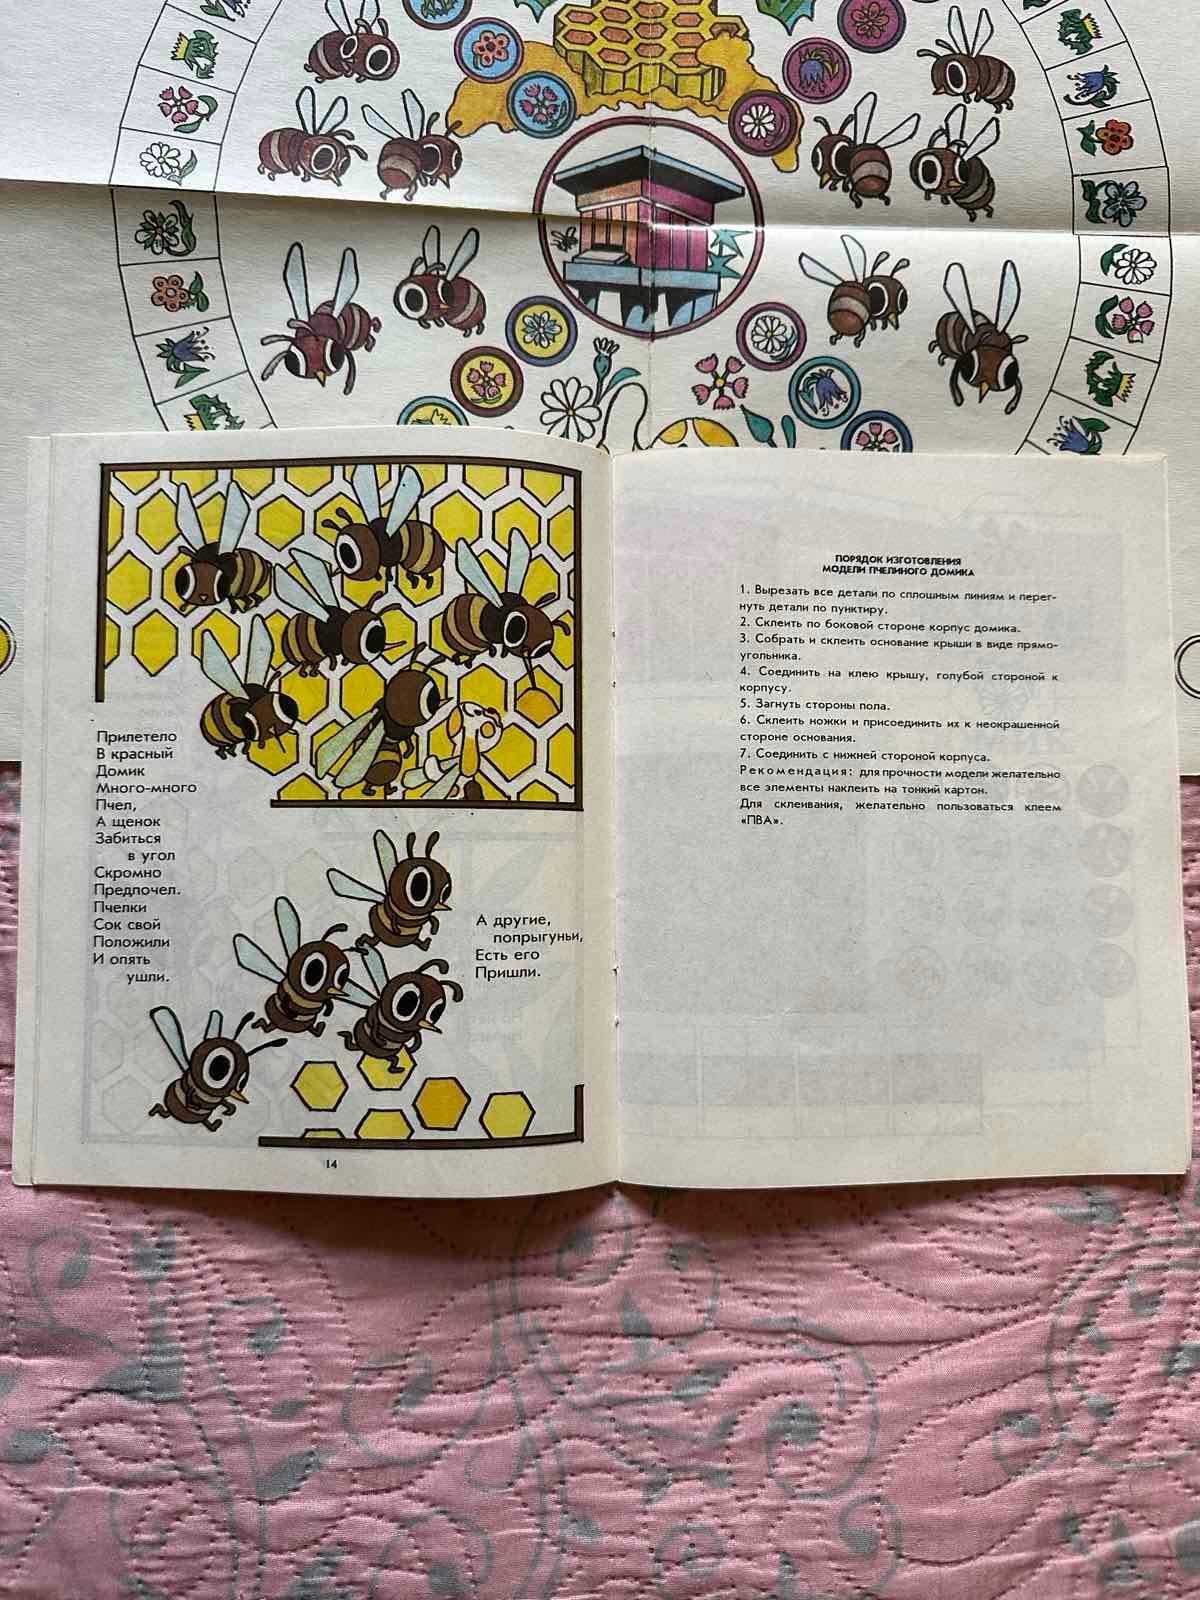 Прилетело
В красный
Домик
Много-много
Пчел,
А щенок
Забиться
в угол
Скромно
Предпочел.
Пчелки
Сок свой
Положили
И опять
ушли.
А другие,
попрыгуньи,
Есть его
Пришли.
14
ПОРЯДОК ИЗГОТОВЛЕНИЯ
МОДЕЛИ ПЧЕЛИНОГО ДОМИКА
1. Вырезать все детали по сплошным линиям и перег-
нуть детали по пунктиру.
2. Склеить по боковой стороне корпус домика.
3. Собрать и склеить основание крыши в виде прямо-
угольника.
4. Соединить на клею крышу, голубой стороной к
корпусу.
5. Загнуть стороны пола.
6. Склеить ножки и присоединить их к неокрашенной
стороне основания.
7. Соединить с нижней стороной корпуса.
Рекомендация: для прочности модели желательно
все элементы наклеить на тонкий картон.
Для склеивания, желательно пользоваться клеем
«ПВА».